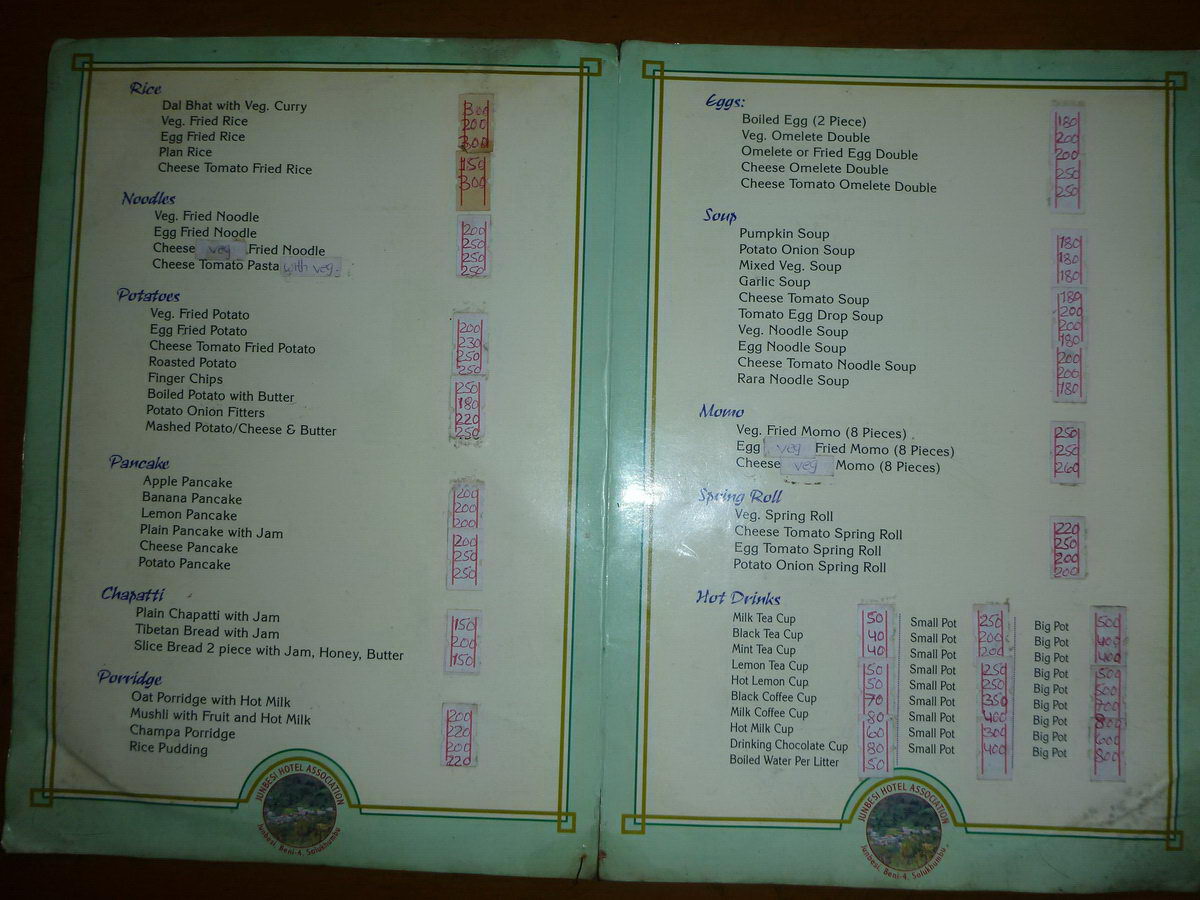 Rice
Dal Bhat with Veg. Curry 300
Veg. Fried Rice 200
Egg Fried Rice 300
Plan Rice 150
Cheese Tomato Fried Rice 300
Noodles
Veg. Fried Noodle 200
Egg Fried Noodle 250
Cheese veg Fried Noodle 250
Cheese Tomato Pasta with veg. 250
Potatoes
Veg. Fried Potato 200
Egg Fried Potato 230
Cheese Tomato Fried Potato 250
Roasted Potato 250
Finger Chips 250
Boiled Potato with Butter 180
Potato Onion Fitters 220
Mashed Potato/Cheese & Butter 250
Pancake
Apple Pancake 200
Banana Pancake 200
Lemon Pancake 200
Plain Pancake with Jam 200
Cheese Pancake 250
Potato Pancake 250
Chapatti
Plain Chapatti with Jam 150
Tibetan Bread with Jam 200
Slice Bread 2 piece with Jam, Honey, Butter 150
Porridge
Oat Porridge with Hot Milk 200
Mushli with Fruit and Hot Milk 220
Champa Porridge 200
Rice Pudding 220
JUNBESI HOTEL ASSOCIATION
Junbesi, Beni-4, Solukhumbu
Eggs:
Boiled Egg (2 Piece) 180
Veg. Omelete Double 200
Omelete or Fried Egg Double 200
Cheese Omelete Double 250
Cheese Tomato Omelete Double 250
Soup
Pumpkin Soup 180
Potato Onion Soup 180
Mixed Veg. Soup 180
Garlic Soup 180
Cheese Tomato Soup 200
Tomato Egg Drop Soup 200
Veg. Noodle Soup 180
Egg Noodle Soup 200
Cheese Tomato Noodle Soup 200
Rara Noodle Soup 180
Momo
Veg. Fried Momo (8 Pieces) 250
Egg veg Fried Momo (8 Pieces) 250
Cheese veg Momo (8 Pieces) 260
Spring Roll
Veg. Spring Roll 220
Cheese Tomato Spring Roll 250
Egg Tomato Spring Roll 200
Potato Onion Spring Roll 200
Hot Drinks
Milk Tea Cup 50 Small Pot 250 Big Pot 500
Black Tea Cup 40 Small Pot 200 Big Pot 400
Mint Tea Cup 40 Small Pot 200 Big Pot 400
Lemon Tea Cup 50 Small Pot 250 Big Pot 500
Hot Lemon Cup 50 Small Pot 250 Big Pot 500
Black Coffee Cup 70 Small Pot 350 Big Pot 700
Milk Coffee Cup 80 Small Pot 400 Big Pot 800
Hot Milk Cup 60 Small Pot 300 Big Pot 600
Drinking Chocolate Cup 80 Small Pot 400 Big Pot 800
Boiled Water Per Litter 50
JUNBESI HOTEL ASSOCIATION
Junbesi, Beni-4, Solukhumbu